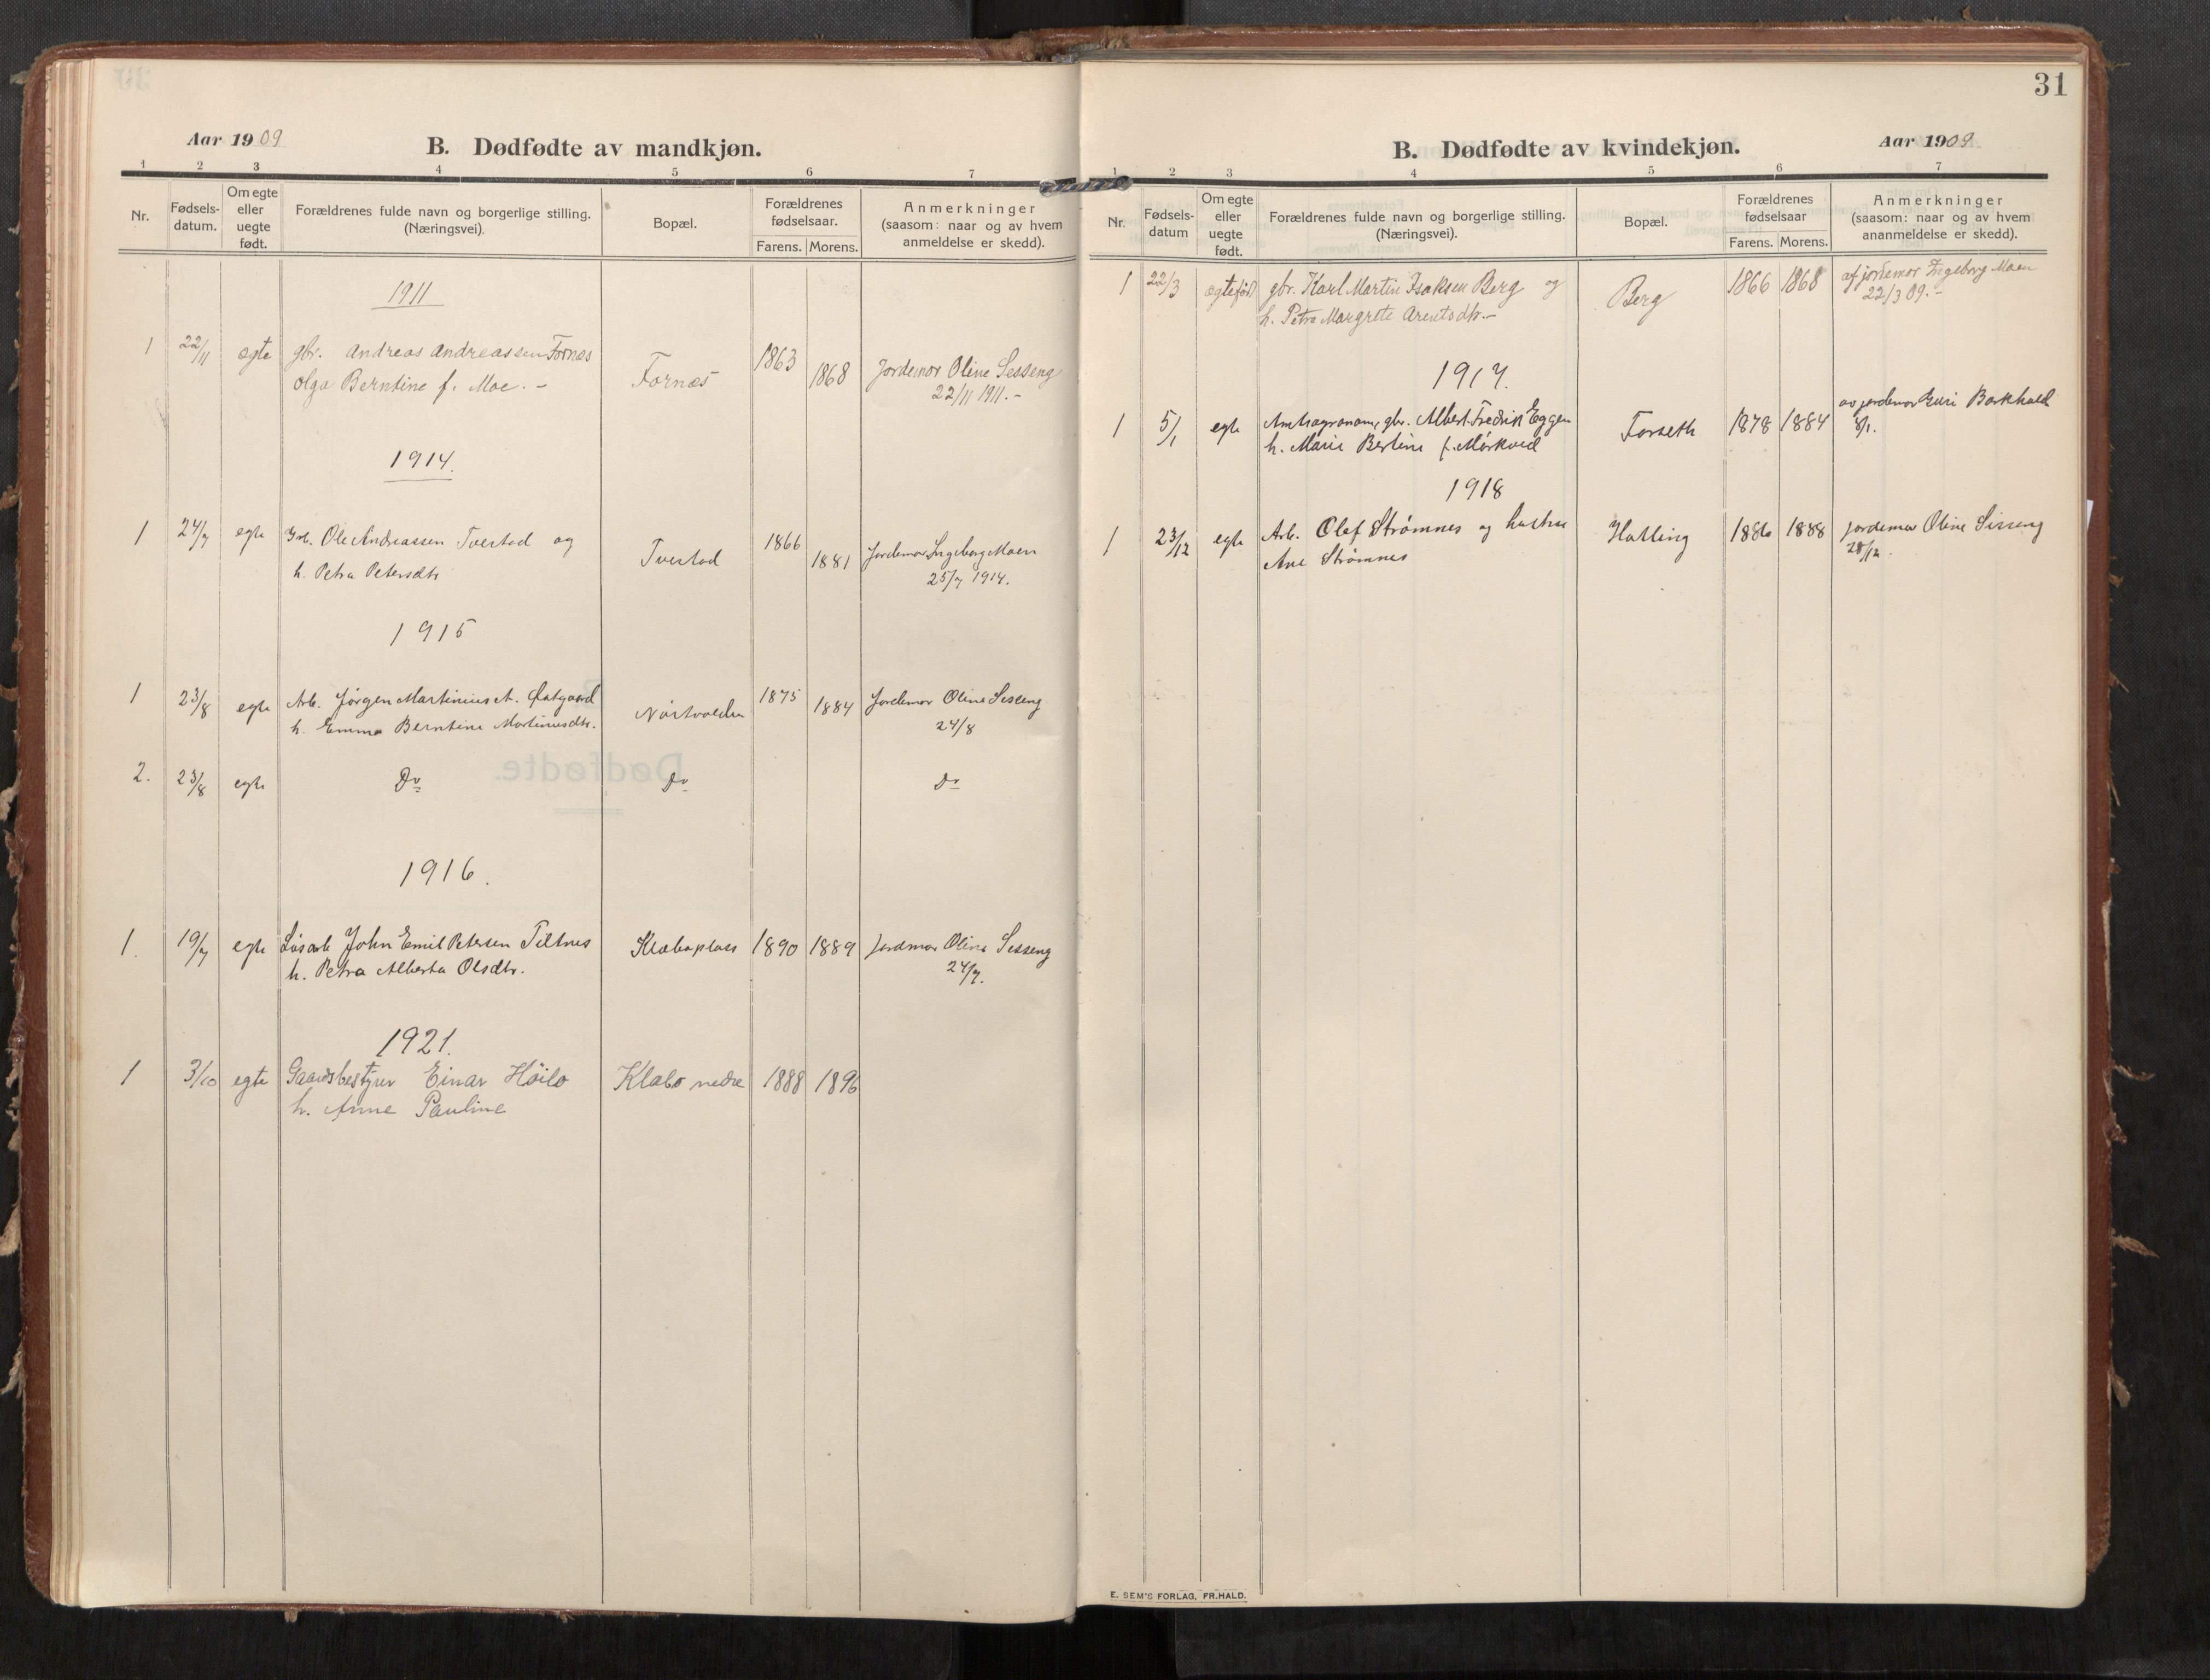 Aar 1909
B. Dødfødte av mandkjøn.
1 2 3 4 5 6 7
Nr.
Fødsels-
datum.
Om egte
eller
uegte
født.
Forældrenes fulde navn og borgerlige stilling.
(Næringsvei).
Bopæl.
Forældrenes
fødselsaar.
Farens. Morens.
Anmerkninger
(saasom: naar og av hvem
anmeldelse er skedd).
1911
1 22/11 ægte gbr. Andreas Andreassen Fornes Fornæs 1863 1868 Jordemor Oline Sesseng
Olga Berntine f. Moe. - 22/11 1911. -
1914.
1 24/7 egte Gbr. Ole Andreassen Tvestad og Tvestad 1866 1881 Jordemor Ingeborg Moen
h. Petra Petersdtr 25/7 1914.
1915
1 23/8 egte Arb. Jørgen Martinius A. 1875 1884 Jordemor Oline Sesseng
h. Emma Berntine Martinusdtr. 24/8
2. 23/8 egte Do Do Do
1916.
1. 19/7 egte Løsarb John Emil Petersen Tiltnes Klæboplass 1890 1889 Jordmor Oline Sesseng
h. Petra Alberta Olsdtr. 24/7.
1921.
1 3/10 egte Gaardsbestyrer Einar Høilo Klæbo nedre 1888 1896
h. Anne Pauline
31
B. Dødfødte av kvindekjøn.
Aar 1909
1 2 3 4 5 6 7
Nr.
Fødsels-
datum
Om egte
eller
uegte
født.
Forældrenes fulde navn og borgerlige stilling.
(Næringsvei).
Bopæl.
Forældrenes
fødselsaar
Farens. Morens.
Anmerkninger
(saasom: naar og av hvem
ananmeldelse er skedd).
1 22/3 ægtefød gbr. Karl Martin Isaksen Berg og Berg 1866 1868 af jordemor Ingeborg Moen
h. Petra Margrete Arentsdtr. - 22/3 09. -
1917.
1 5/1 egte Amtsagronom, gbr. Albert Fredrik Eggen Forseth 1878 1884 av jordemor Guri Barkhald
h. Marie Bertine f. Mørkved 8/1.
1918
1 23/12 egte Arb. Olaf Strømnes og hustru Hatling 1886 1888 Jordemor Oline Sisseng
Ane Strømnes 28/12.
E. SEM'S FORLAG, FR.HALD.